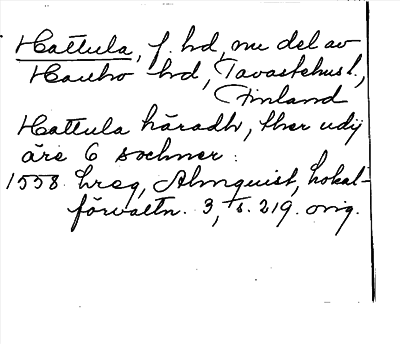 Hattula, f. hd, nu del av
Hauho hd, Tavastehus l.,
Finland
Hattula häradh, ther udij
äre 6 sochner:
1558 hreg, Almquist, Lokal-
förvaltn. 3, s. 219. orig.